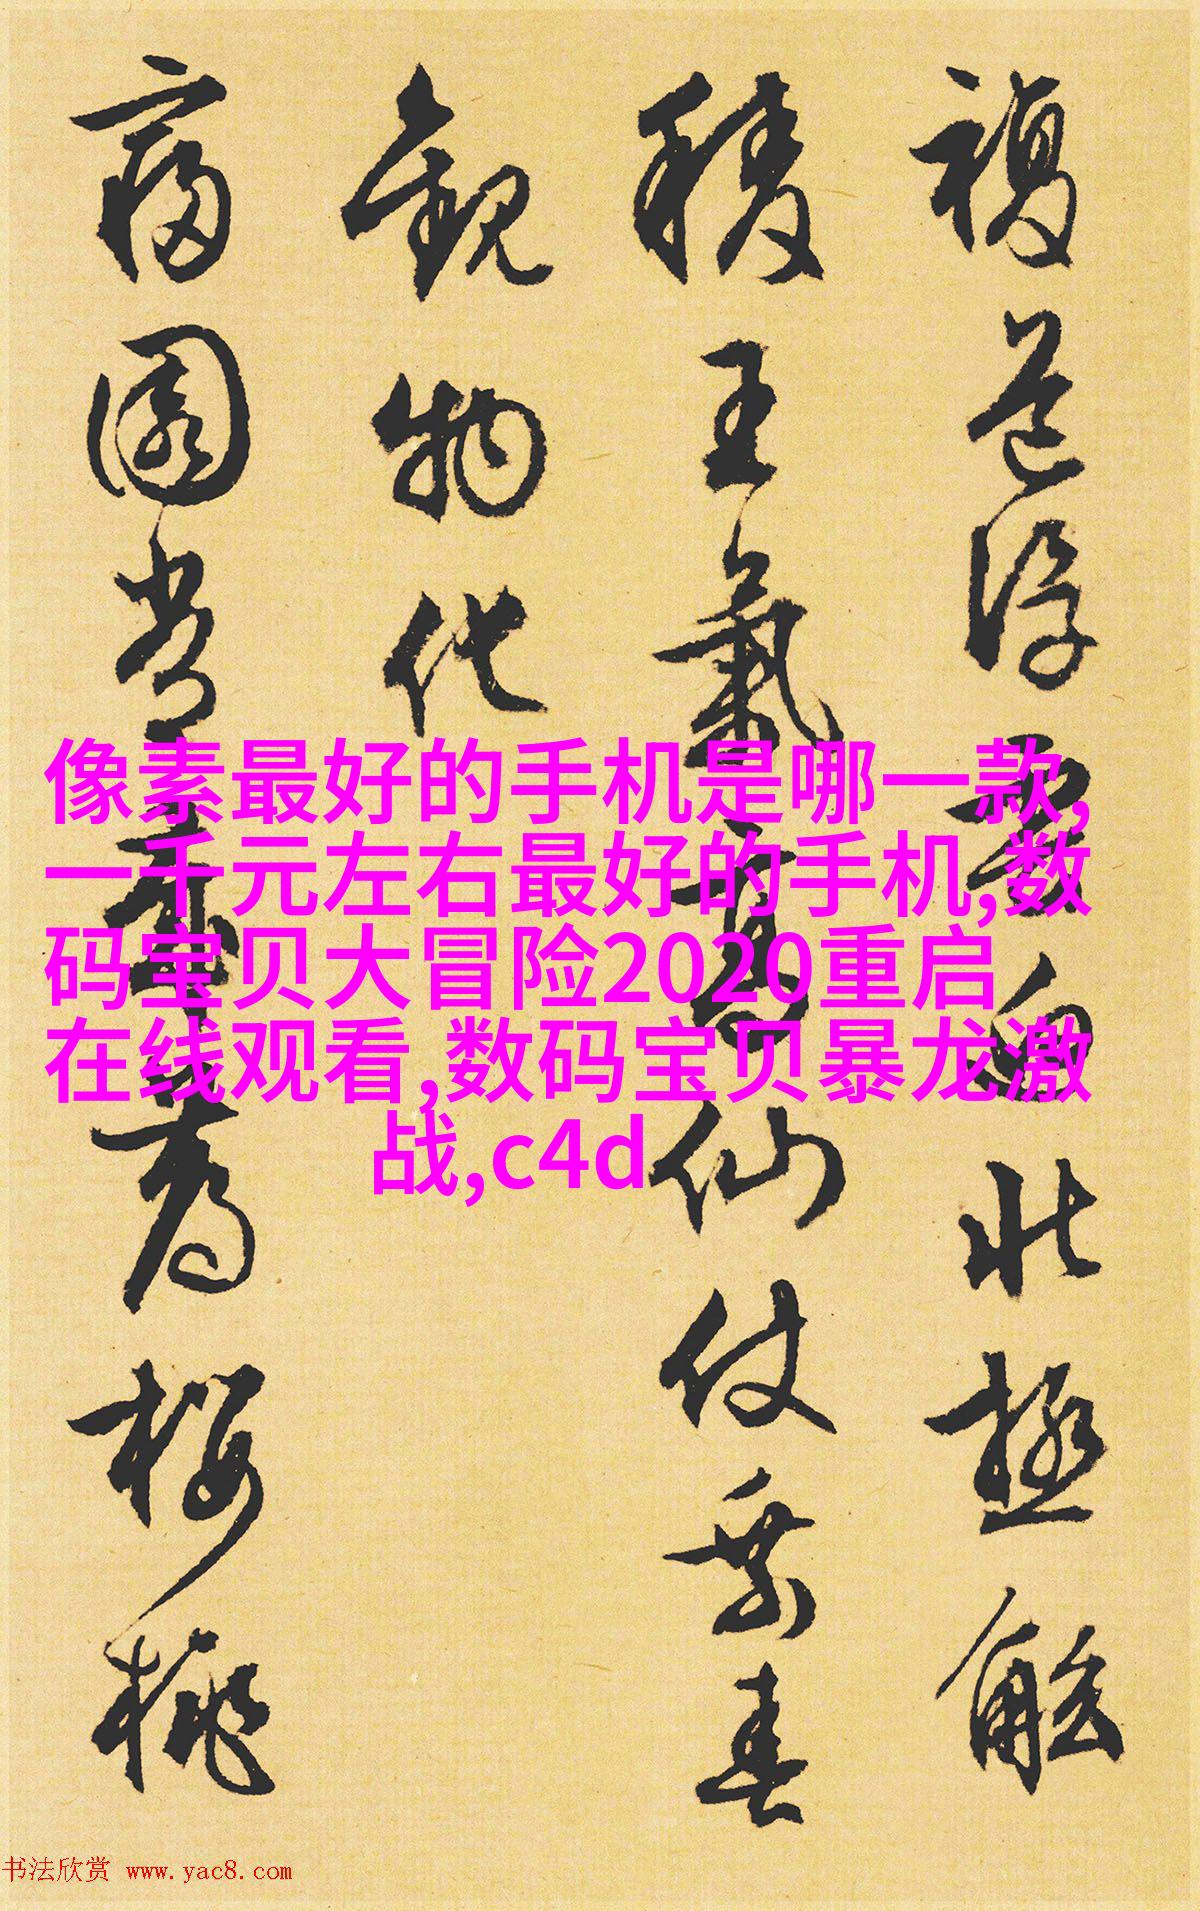 複道浮雲北極觚
稜王氣高仙仗乘春
觀物化
寢園常薦櫻桃
像素最好的手机是哪一款,
一千元左右最好的手机,数
码宝贝大冒险2020重启
在线观看,数码宝贝暴龙激
战,c4d
书法欣赏 www.yac8.com